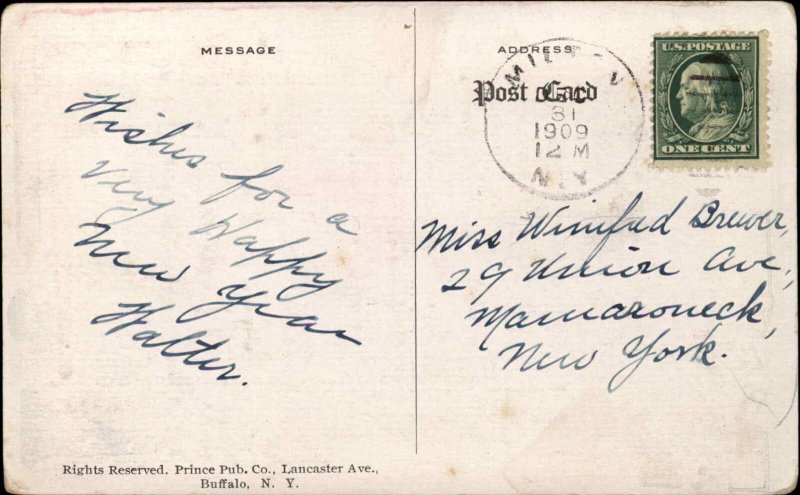 MESSAGE
Wishes for a
very Happy
New Year
Walter.
Rights Reserved. Prince Pub. Co., Lancaster Ave.,
Buffalo, N. Y.
ADDRESS
Post Card
DEC
31
1909
12 M
N.Y.
U.S. POSTAGE
ONE CENT
Miss Winifred Brewer,
29 Union Ave,
Mamaroneck,
New York.